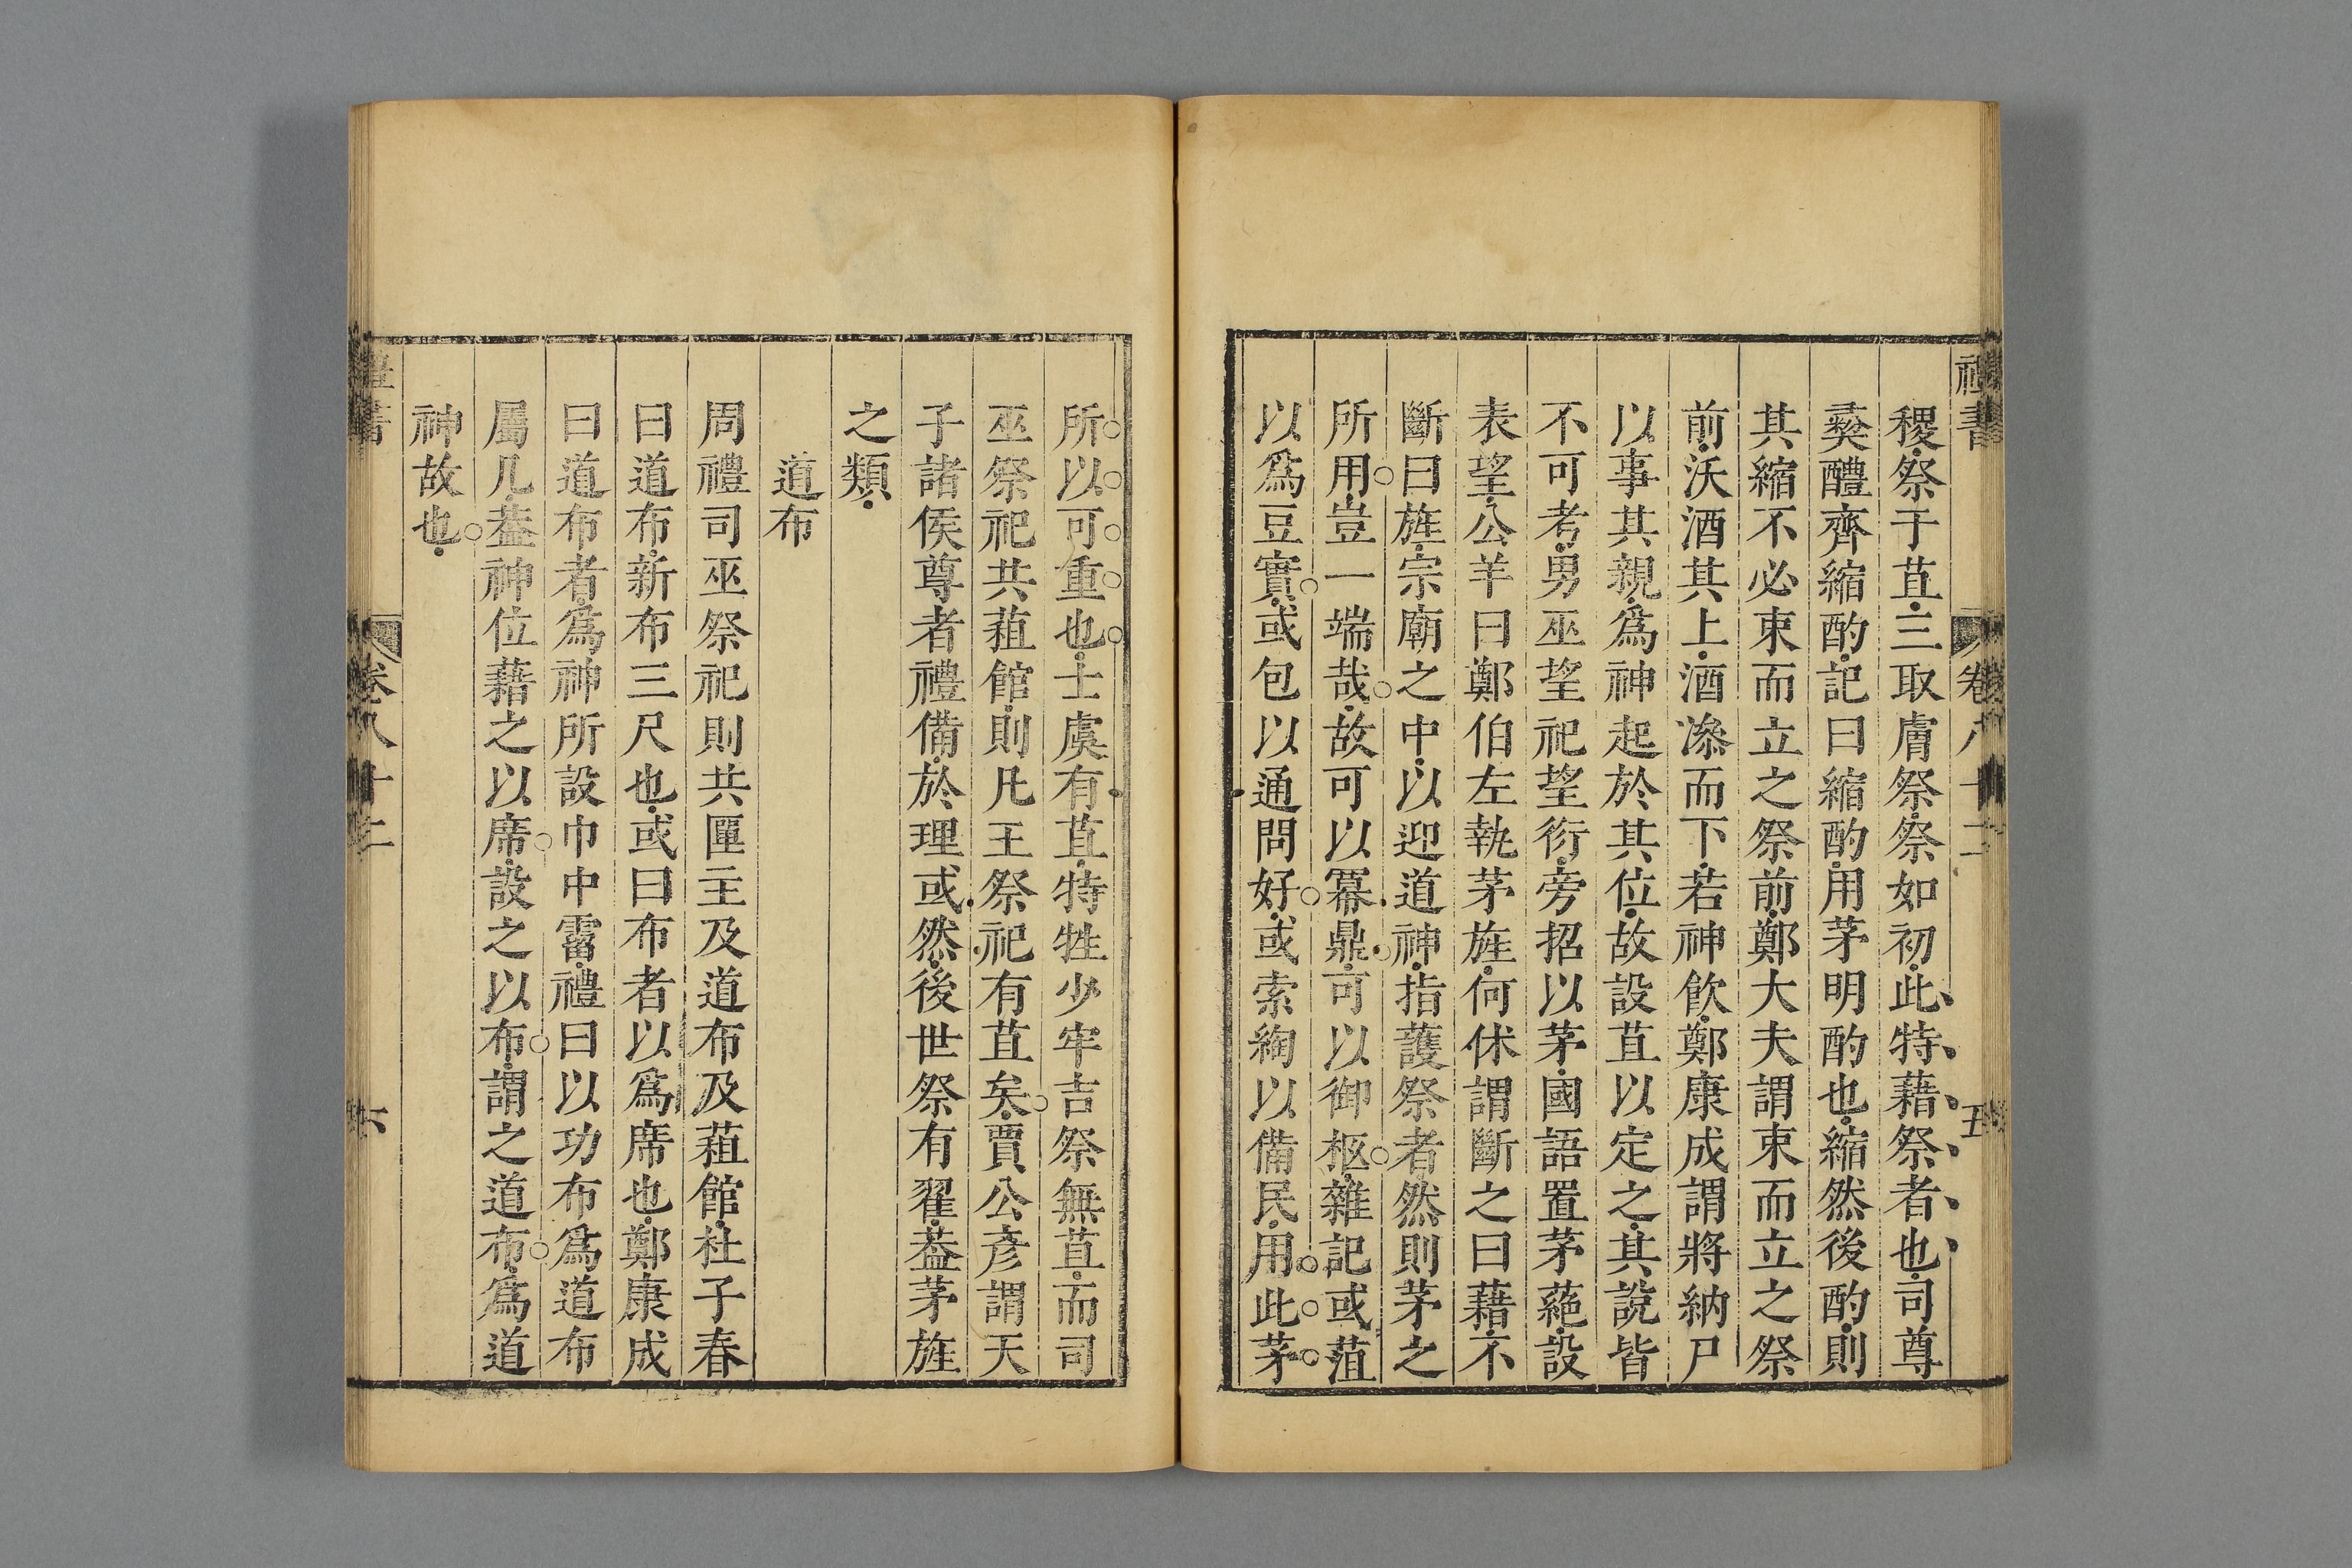 禮書 卷八十二 五
稷祭于苴三取膚祭祭如初此特藉祭者也司尊
彞醴齊縮酌記曰縮酌用茅明酌也縮然後酌則
其縮不必束而立之祭前鄭大夫謂束而立之祭
前沃酒其上酒滲而下若神飮鄭康成謂將納尸
以事其親爲神起於其位故設苴以定之其說皆
不可考男巫望祀望衍旁招以茅國語置茅蕝設
表望公羊曰鄭伯左執茅旌何休謂斷之曰藉不
斷曰旌宗廟之中以迎道神指護祭者然則茅之
所用豈一端哉故可以冪鼎可以御柩雜記或菹
以爲豆實或包以通問好或索綯以備民用此茅
所以可重也士虞有苴特牲少牢吉祭無苴而司
巫祭祀共蒩館則凡王祭祀有苴矣賈公彥謂天
子諸侯尊者禮備於理或然後世祭有翟葢茅旌
之類
道布
周禮司巫祭祀則共匰主及道布及蒩館杜子春
曰道布新布三尺也或曰布者以爲席也鄭康成
曰道布者爲神所設巾中霤禮曰以功布爲道布
屬几葢神位藉之以席設之以布謂之道布爲道
神故也
禮書 卷八十二 六